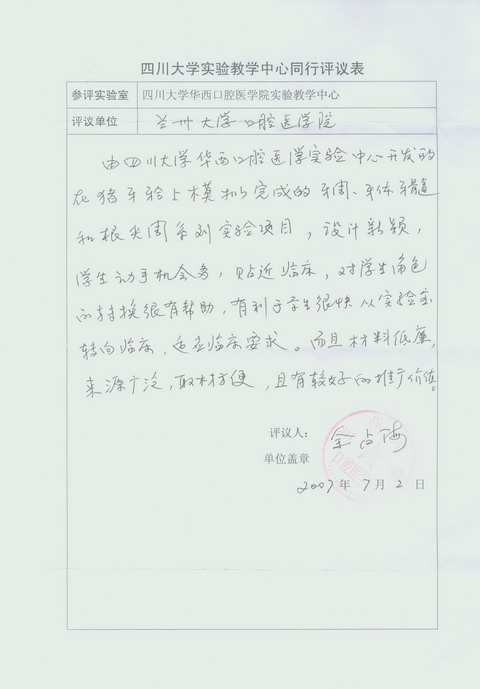 四川大学实验教学中心同行评议表
参评实验室 四川大学华西口腔医学院实验教学中心
评议单位 兰州大学口腔医学院
由四川大学华西口腔医学实验中心开发的
在猪牙牙合上模拟完成的牙周、牙体牙髓
和根尖周系列实验项目，设计新颖，
学生动手机会多，贴近临床，对学生角色
的转换很有帮助，有利于学生很快从实验室
转向临床，适应临床要求。而且材料低廉，
来源广泛，取材方便，且有较好的推广价值。
评议人： 余占海
单位盖章
2007年7月2日
口腔医